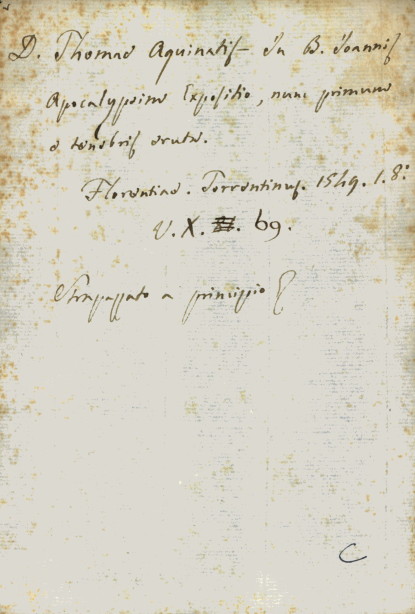 D. Thomae Aquinatis In B. Ioannis
Apocalypsim Expositio, nunc primum
e tenebris eruta.
Florentiae. Torrentinus. 1549. 1. 8:
V. X. 69.
Strappato a principio
C